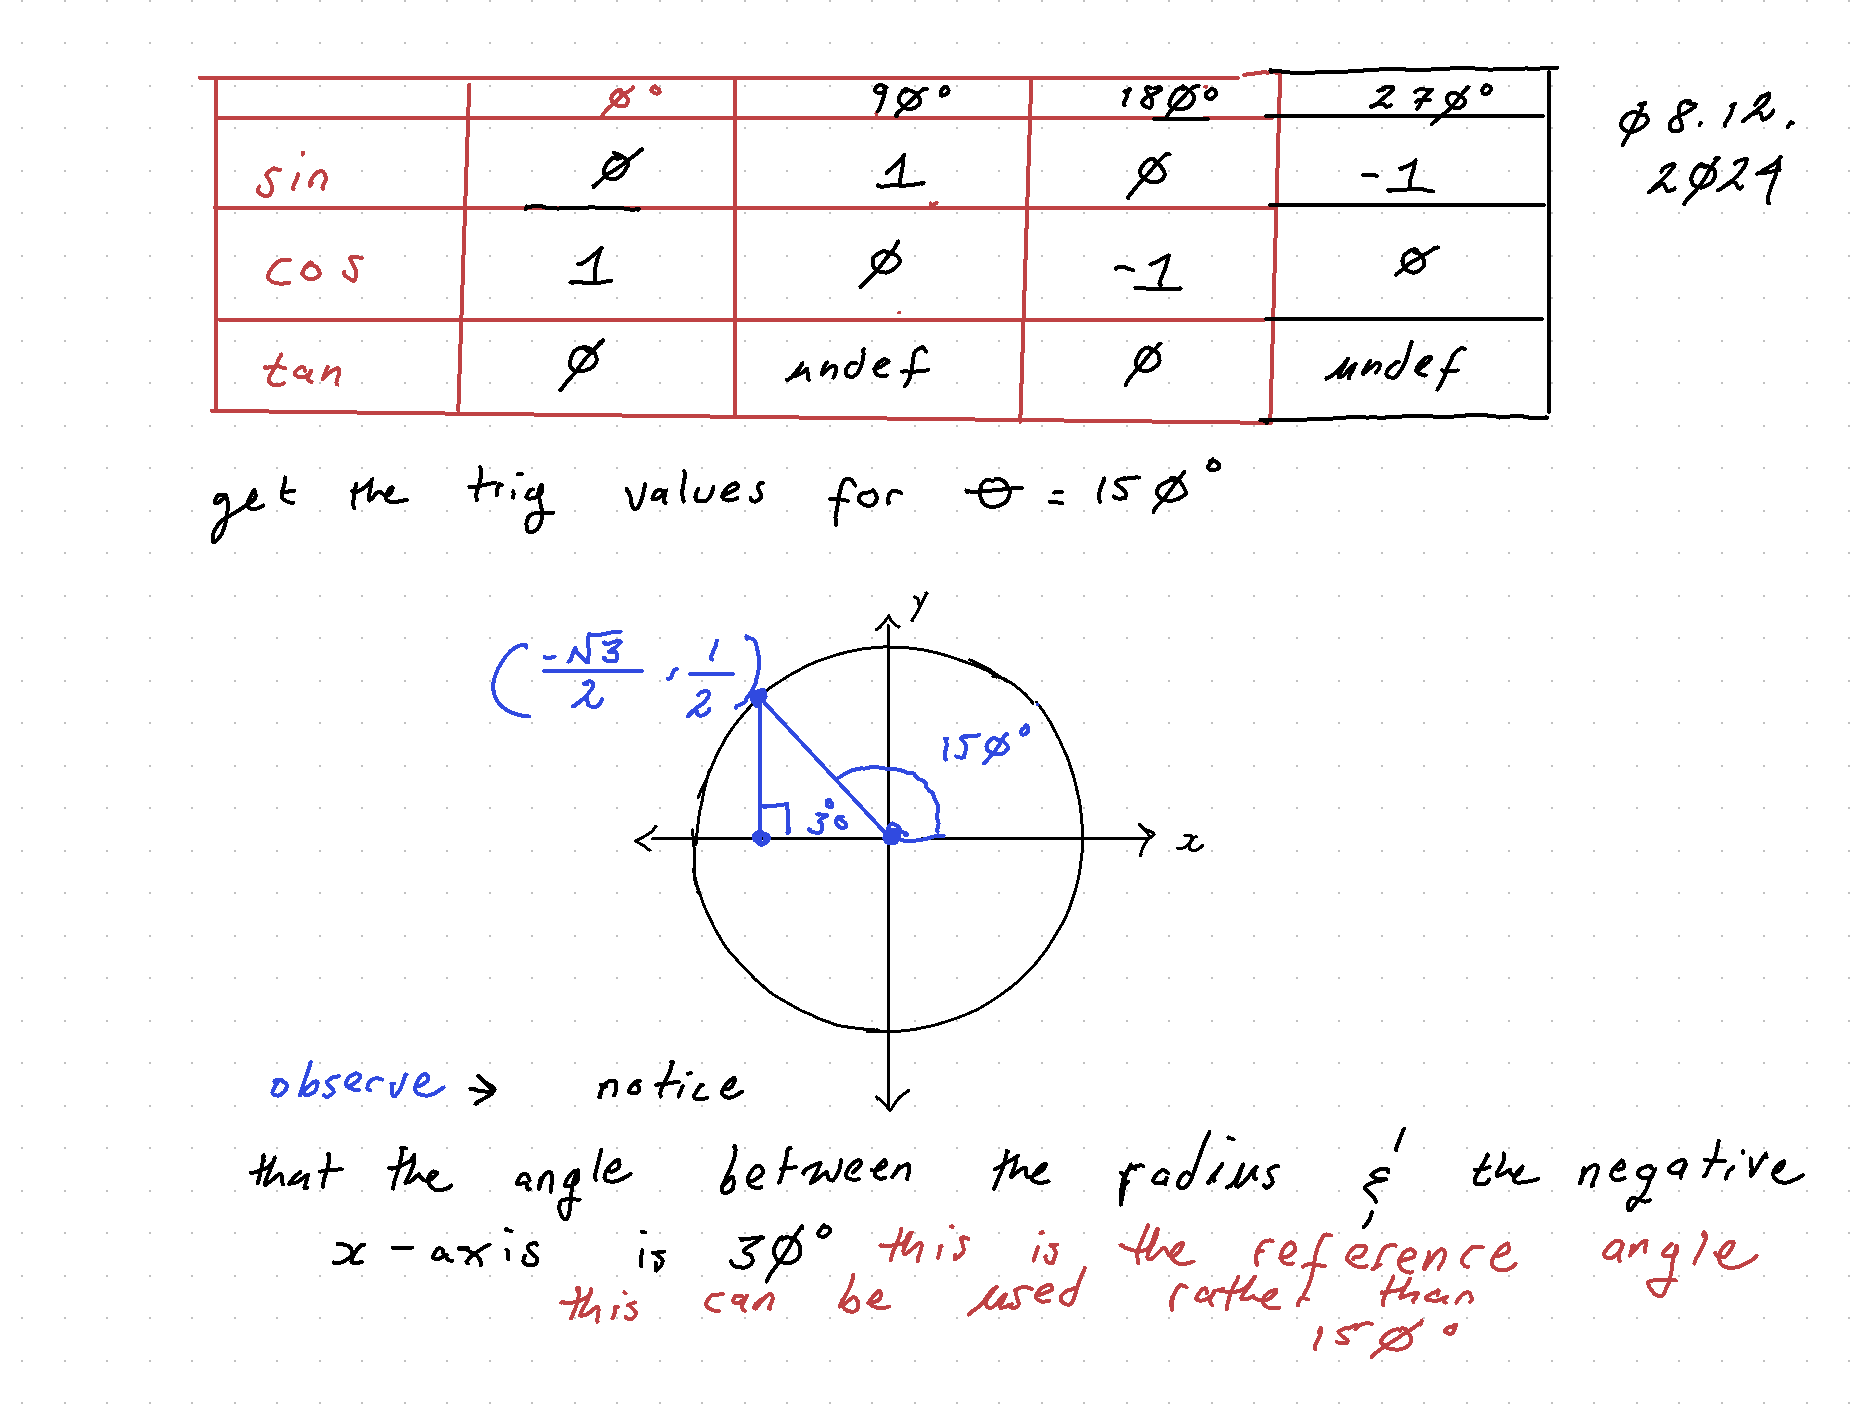 ø° 9ø° 18ø° 27ø°
ø8.12.
2ø24
sin ø 1 ø -1
cos 1 ø -1 ø
tan ø undef ø undef
get the trig values for θ = 15ø°
y
(-√3/2, 1/2)
15ø°
30°
x
observe → notice
that the angle between the radius & the negative
x-axis is 3ø° this is the reference angle
this can be used rather than
15ø°